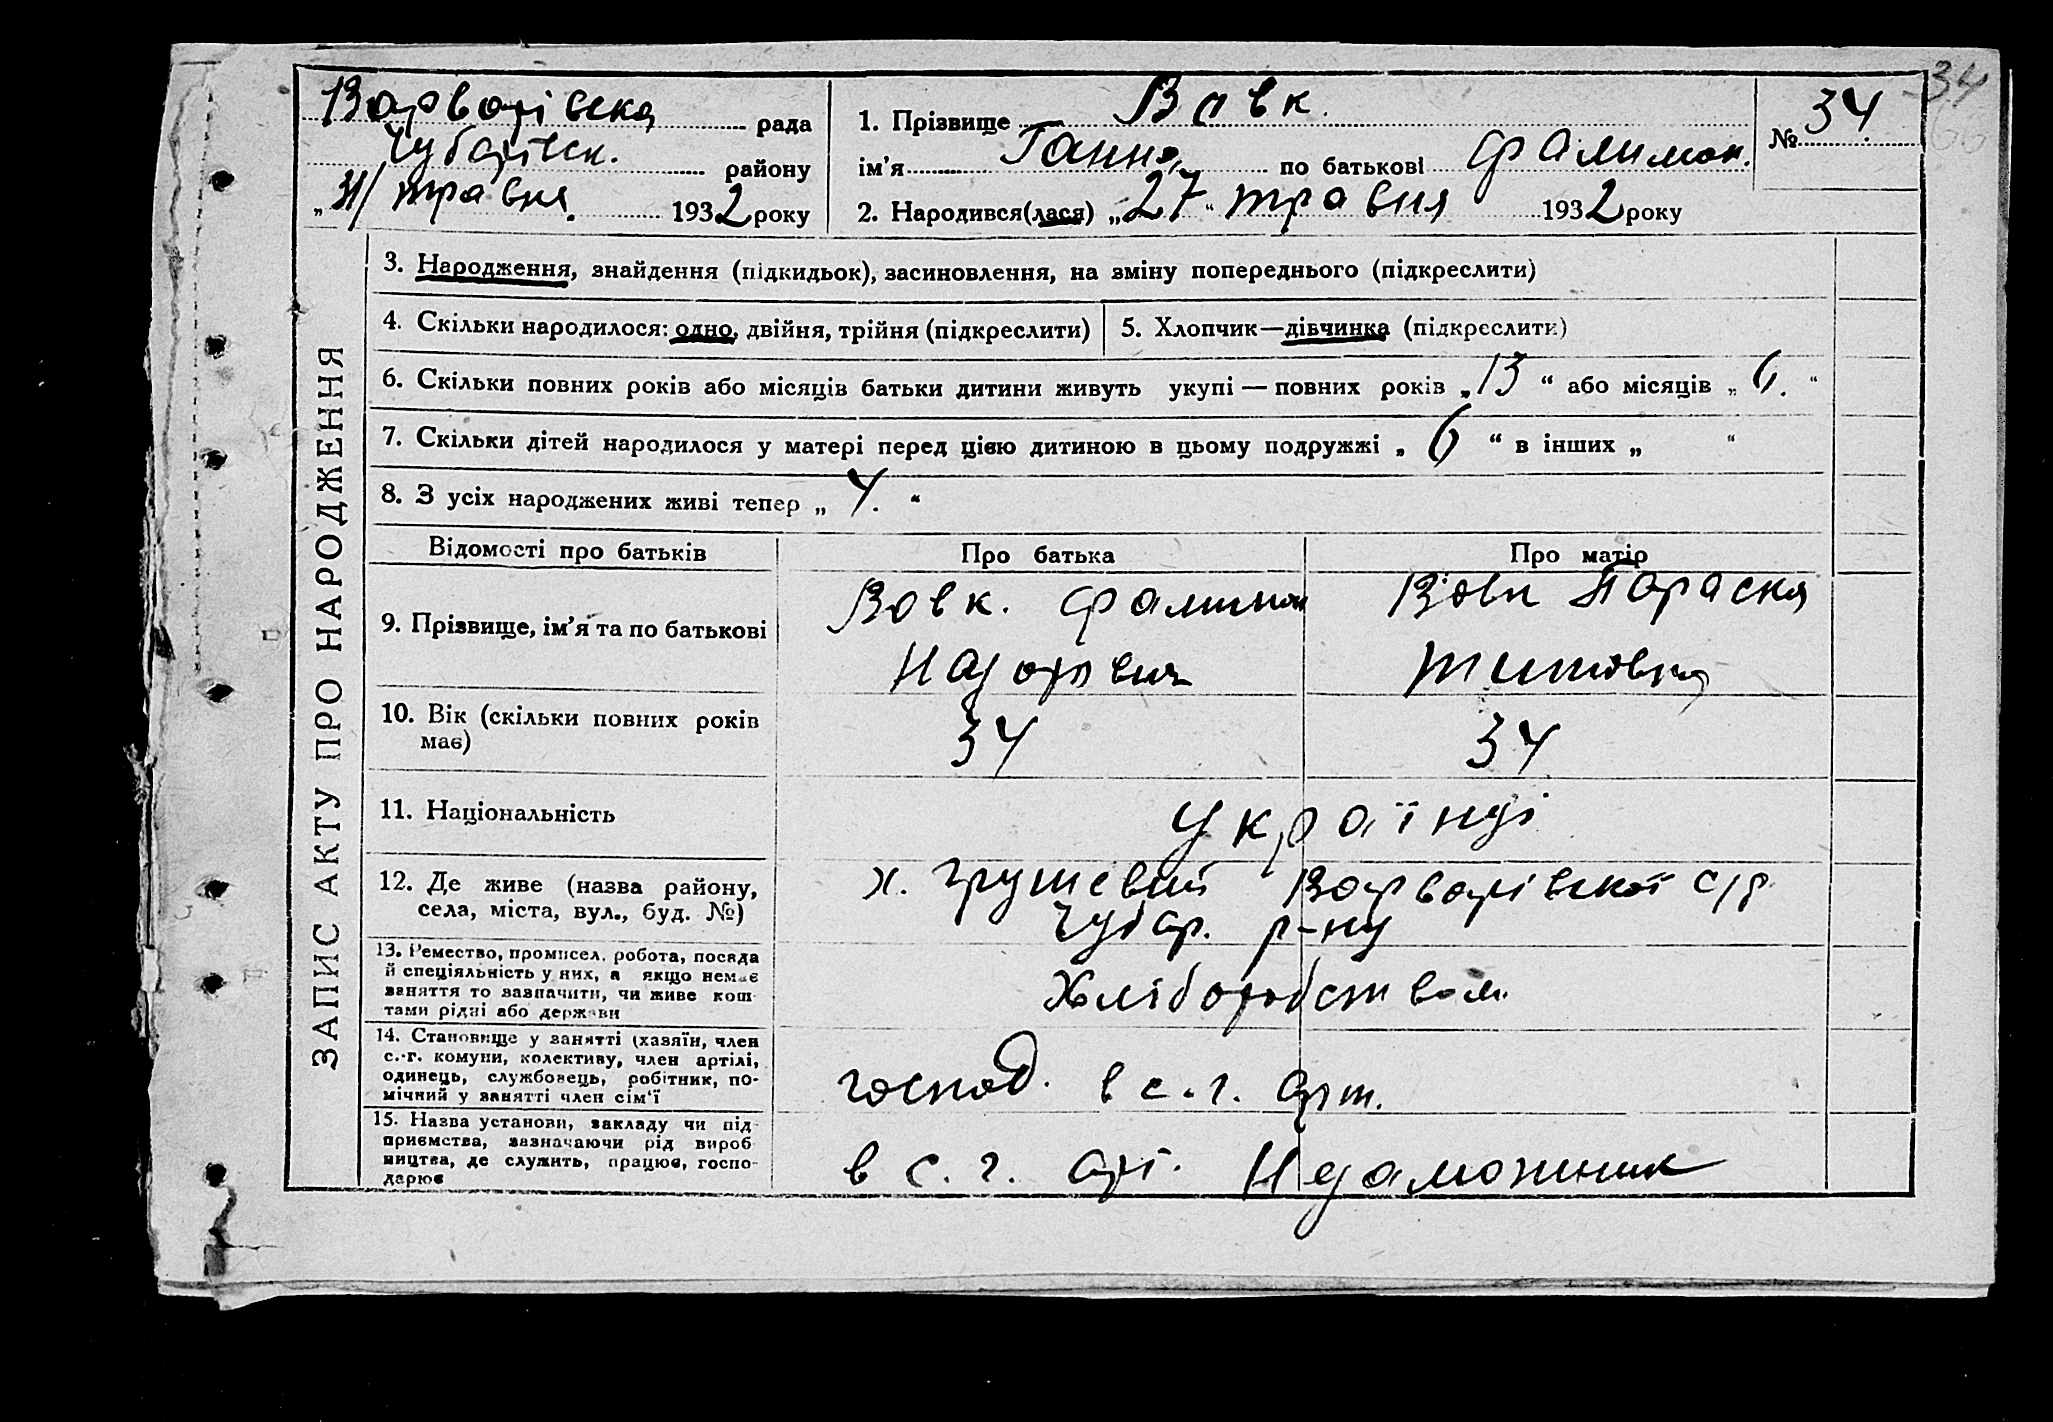 34
Варварівська рада
Чубарівськ. району
„31/ травня. 1932 року
1. Прізвище Вовк.
ім’я Ганна, по батькові Фалимон.
2. Народився(лася) „27“ травня 1932 року
№ 34
ЗАПИС АКТУ ПРО НАРОДЖЕННЯ
3. Народження, знайдення (підкидьок), засиновлення, на зміну попереднього (підкреслити)
4. Скільки народилося: одно, двійня, трійня (підкреслити) 5. Хлопчик—дівчинка (підкреслити)
6. Скільки повних років або місяців батьки дитини живуть укупі — повних років „13“ або місяців „6.“
7. Скільки дітей народилося у матері перед цією дитиною в цьому подружжі „6“ в інших „ “
8. З усіх народжених живі тепер „4.“
Відомості про батьків Про батька Про матір
9. Прізвище, ім’я та по батькові
Вовк. Фалимон
Вовк Параска
Титовна
10. Вік (скільки повних років
має)
34 34
11. Національність
Українці
12. Де живе (назва району,
села, міста, вул., буд. №)
х. Грушевий Варварівської с/р
Чубар. р-ну
13. Ремество, промисел, робота, посада
й спеціяльність у них, а якщо немає
заняття то зазначити, чи живе кош-
тами рідні або держави
Хліборобством.
14. Становище у занятті (хазяїн, член
с.-г. комуни, колективу, член артілі,
одинець, службовець, робітник, по-
мічний у занятті член сім’ї
господ. в с.-г. арт.
15. Назва установи, закладу чи під-
приємства, зазначаючи рід вироб-
ництва, де служить, працює, госпо-
дарює
в с. г. арт. Незаможник